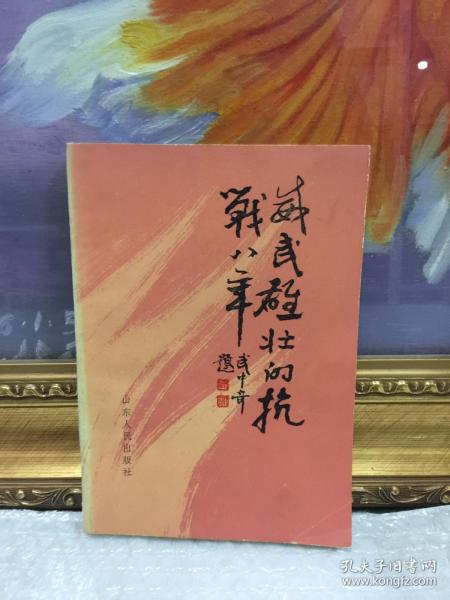 威武雄壮的抗
戰八年
武中奇
題
山东人民出版社
孔夫子旧书网
www.kongfz.com